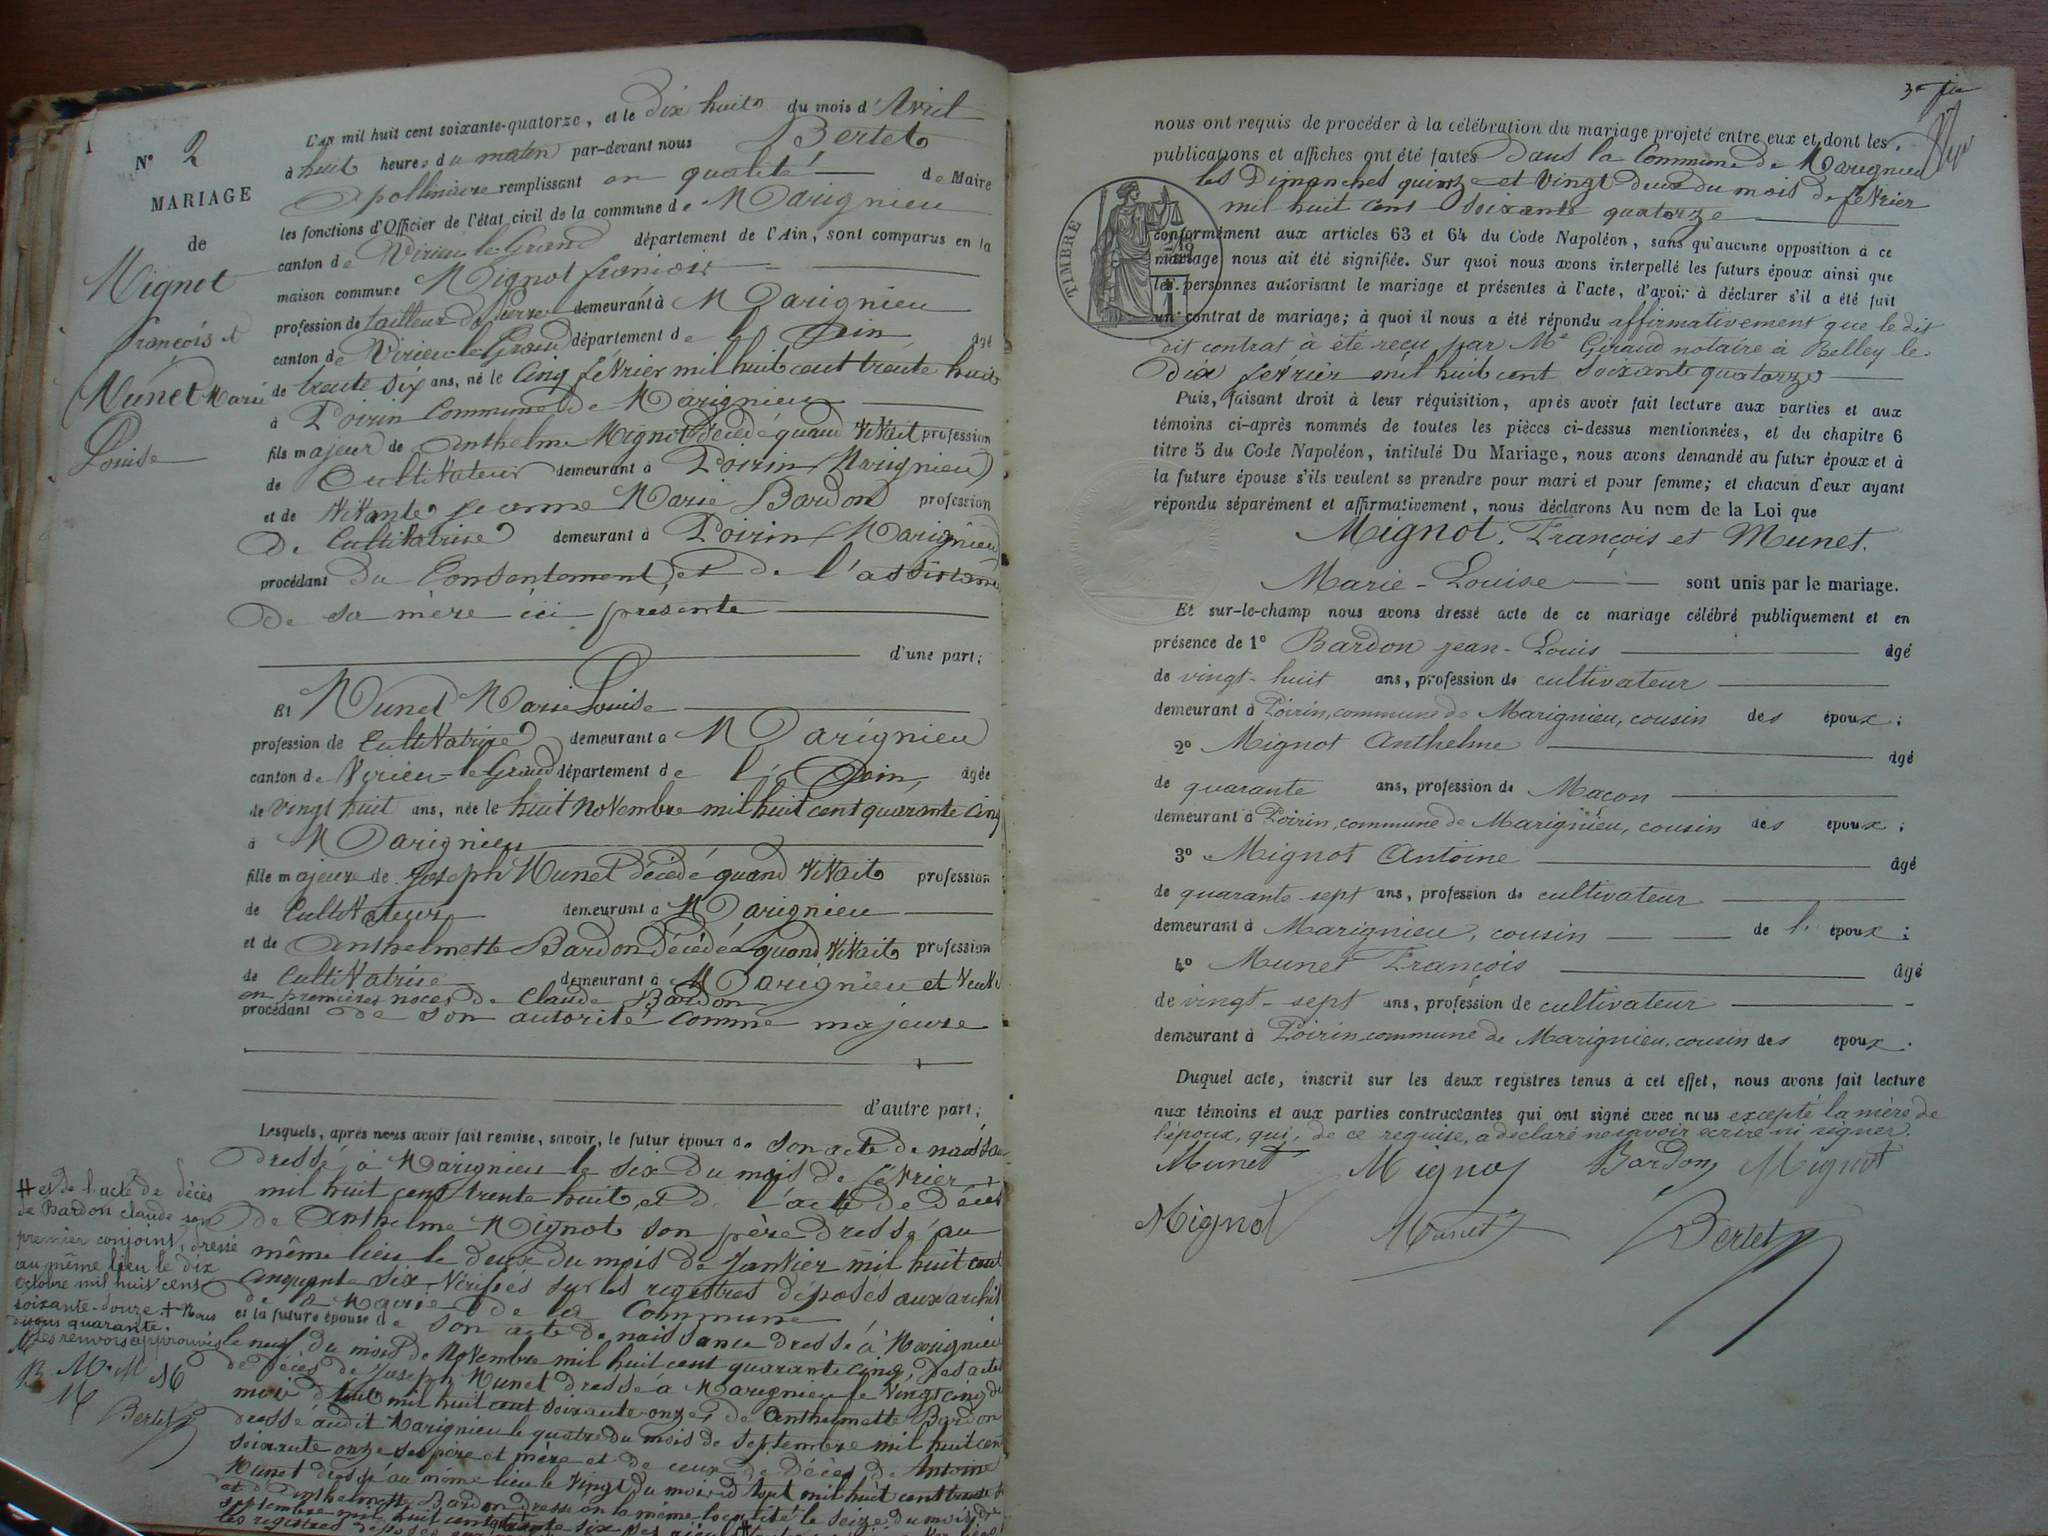 N° 2
MARIAGE
de
Mignot
François et
Munet Marie
Louise
L'an mil huit cent soixante-quatorze, et le dix huit du mois d'Avril
à huit heures du matin par-devant nous Bertet
Apollinaire remplissant en qualité de Maire
les fonctions d'Officier de l'état civil de la commune de Marignieu
canton de Virieu le Grand département de l'Ain, sont comparus en la
maison commune Mignot françois
profession de tailleur de Pierre demeurant à Marignieu
canton de Virieu le Grand département de l'Ain âgé
de trente six ans, né le cinq février mil huit cent trente huit
à Poirin Commune de Marignieu
fils majeur de Anthelme Mignot décédé quand vivait profession
de Cultivateur demeurant à Poirin (Marignieu)
et de vivante Jeanne Marie Bardon profession
de Cultivatrice demeurant à Poirin (Marignieu)
procédant du Consentement et de l'assistance
de sa mère ici présente
d'une part;
Et Munet Marie Louise
profession de Cultivatrice demeurant à Marignieu
canton de Virieu-le Grand département de l'Ain, âgée
de vingt huit ans, née le huit Novembre mil huit cent quarante cinq
à Marignieu
fille majeure de Joseph Munet décédé quand vivait profession
de Cultivateur demeurant à Marignieu
et de Anthelmette Bardon décédée quand vivait profession
de Cultivatrice demeurant à Marignieu et veuve
en premières noces de Claude Bardon
procédant de son autorité comme majeure
d'autre part;
Lesquels, après nous avoir fait remise, savoir, le futur époux de son acte de naissance
dressé à Marignieu le six du mois de février
mil huit cent trente huit, et de l'acte de décès
de Anthelme Mignot son père dressé au
même lieu le deux du mois de Janvier mil huit cent
cinquante six vérifiés sur les registres déposés aux archives
de la Mairie de la Commune
et la future épouse de son acte de naissance dressé à Marignieu
le neuf du mois de Novembre mil huit cent quarante cinq, des actes
de décès de Joseph Munet dressé à Marignieu le vingt cinq du
mois d'Août mil huit cent soixante onze, de Anthelmette Bardon
dressé audit Marignieu le quatre du mois de Septembre mil huit cent
soixante onze ses père et mère et de ceux de décès de Antoine
Munet dressé au même lieu le vingt du mois d'Août mil huit cent
et d'Anthelmette Bardon dressé en la même localité le seize du mois de
septembre mil huit cent six
les registres déposés
et de l'acte de décès
de Bardon Claude son
premier conjoint, dressé
au même lieu le dix
octobre mil huit cent
soixante-douze. + Nous
disons quarante.
Les renvois approuvés
B M. M M
M
Bertet
3e f
nous ont requis de procéder à la célébration du mariage projeté entre eux et dont les
publications et affiches ont été faites dans la Commune de Marignieu
les Dimanches quinze et vingt deux du mois de février
mil huit cent soixante quatorze
TIMBRE
conformément aux articles 63 et 64 du Code Napoléon, sans qu'aucune opposition à ce
mariage nous ait été signifiée. Sur quoi nous avons interpellé les futurs époux ainsi que
les personnes autorisant le mariage et présentes à l'acte, d'avoir à déclarer s'il a été fait
un contrat de mariage; à quoi il nous a été répondu affirmativement que le dit
dit contrat à été reçu par Me Giraud notaire à Belley le
dix février mil huit cent soixante quatorze
Puis, faisant droit à leur réquisition, après avoir fait lecture aux parties et aux
témoins ci-après nommés de toutes les pièces ci-dessus mentionnées, et du chapitre 6
titre 5 du Code Napoléon, intitulé Du Mariage, nous avons demandé au futur époux et à
la future épouse s'ils veulent se prendre pour mari et pour femme; et chacun d'eux ayant
répondu séparément et affirmativement, nous déclarons Au nom de la Loi que
Mignot, François et Munet.
Marie-Louise sont unis par le mariage.
Et sur-le-champ nous avons dressé acte de ce mariage célébré publiquement et en
présence de 1° Bardon jean-Louis âgé
de vingt-huit ans, profession de cultivateur
demeurant à Poirin, commune de Marignieu, cousin des époux;
2° Mignot Anthelme âgé
de quarante ans, profession de Maçon
demeurant à Poirin, commune de Marignieu, cousin des époux;
3° Mignot Antoine âgé
de quarante-sept ans, profession de cultivateur
demeurant à Marignieu, cousin de l'époux;
4° Munet François âgé
de vingt-sept ans, profession de cultivateur
demeurant à Poirin, commune de Marignieu, cousin des époux.
Duquel acte, inscrit sur les deux registres tenus à cet effet, nous avons fait lecture
aux témoins et aux parties contractantes qui ont signé avec nous excepté la mère de
l'époux, qui, de ce requise, a déclaré ne savoir écrire ni signer.
Munet Mignot Bardon Mignot
Mignot Munet Bertet